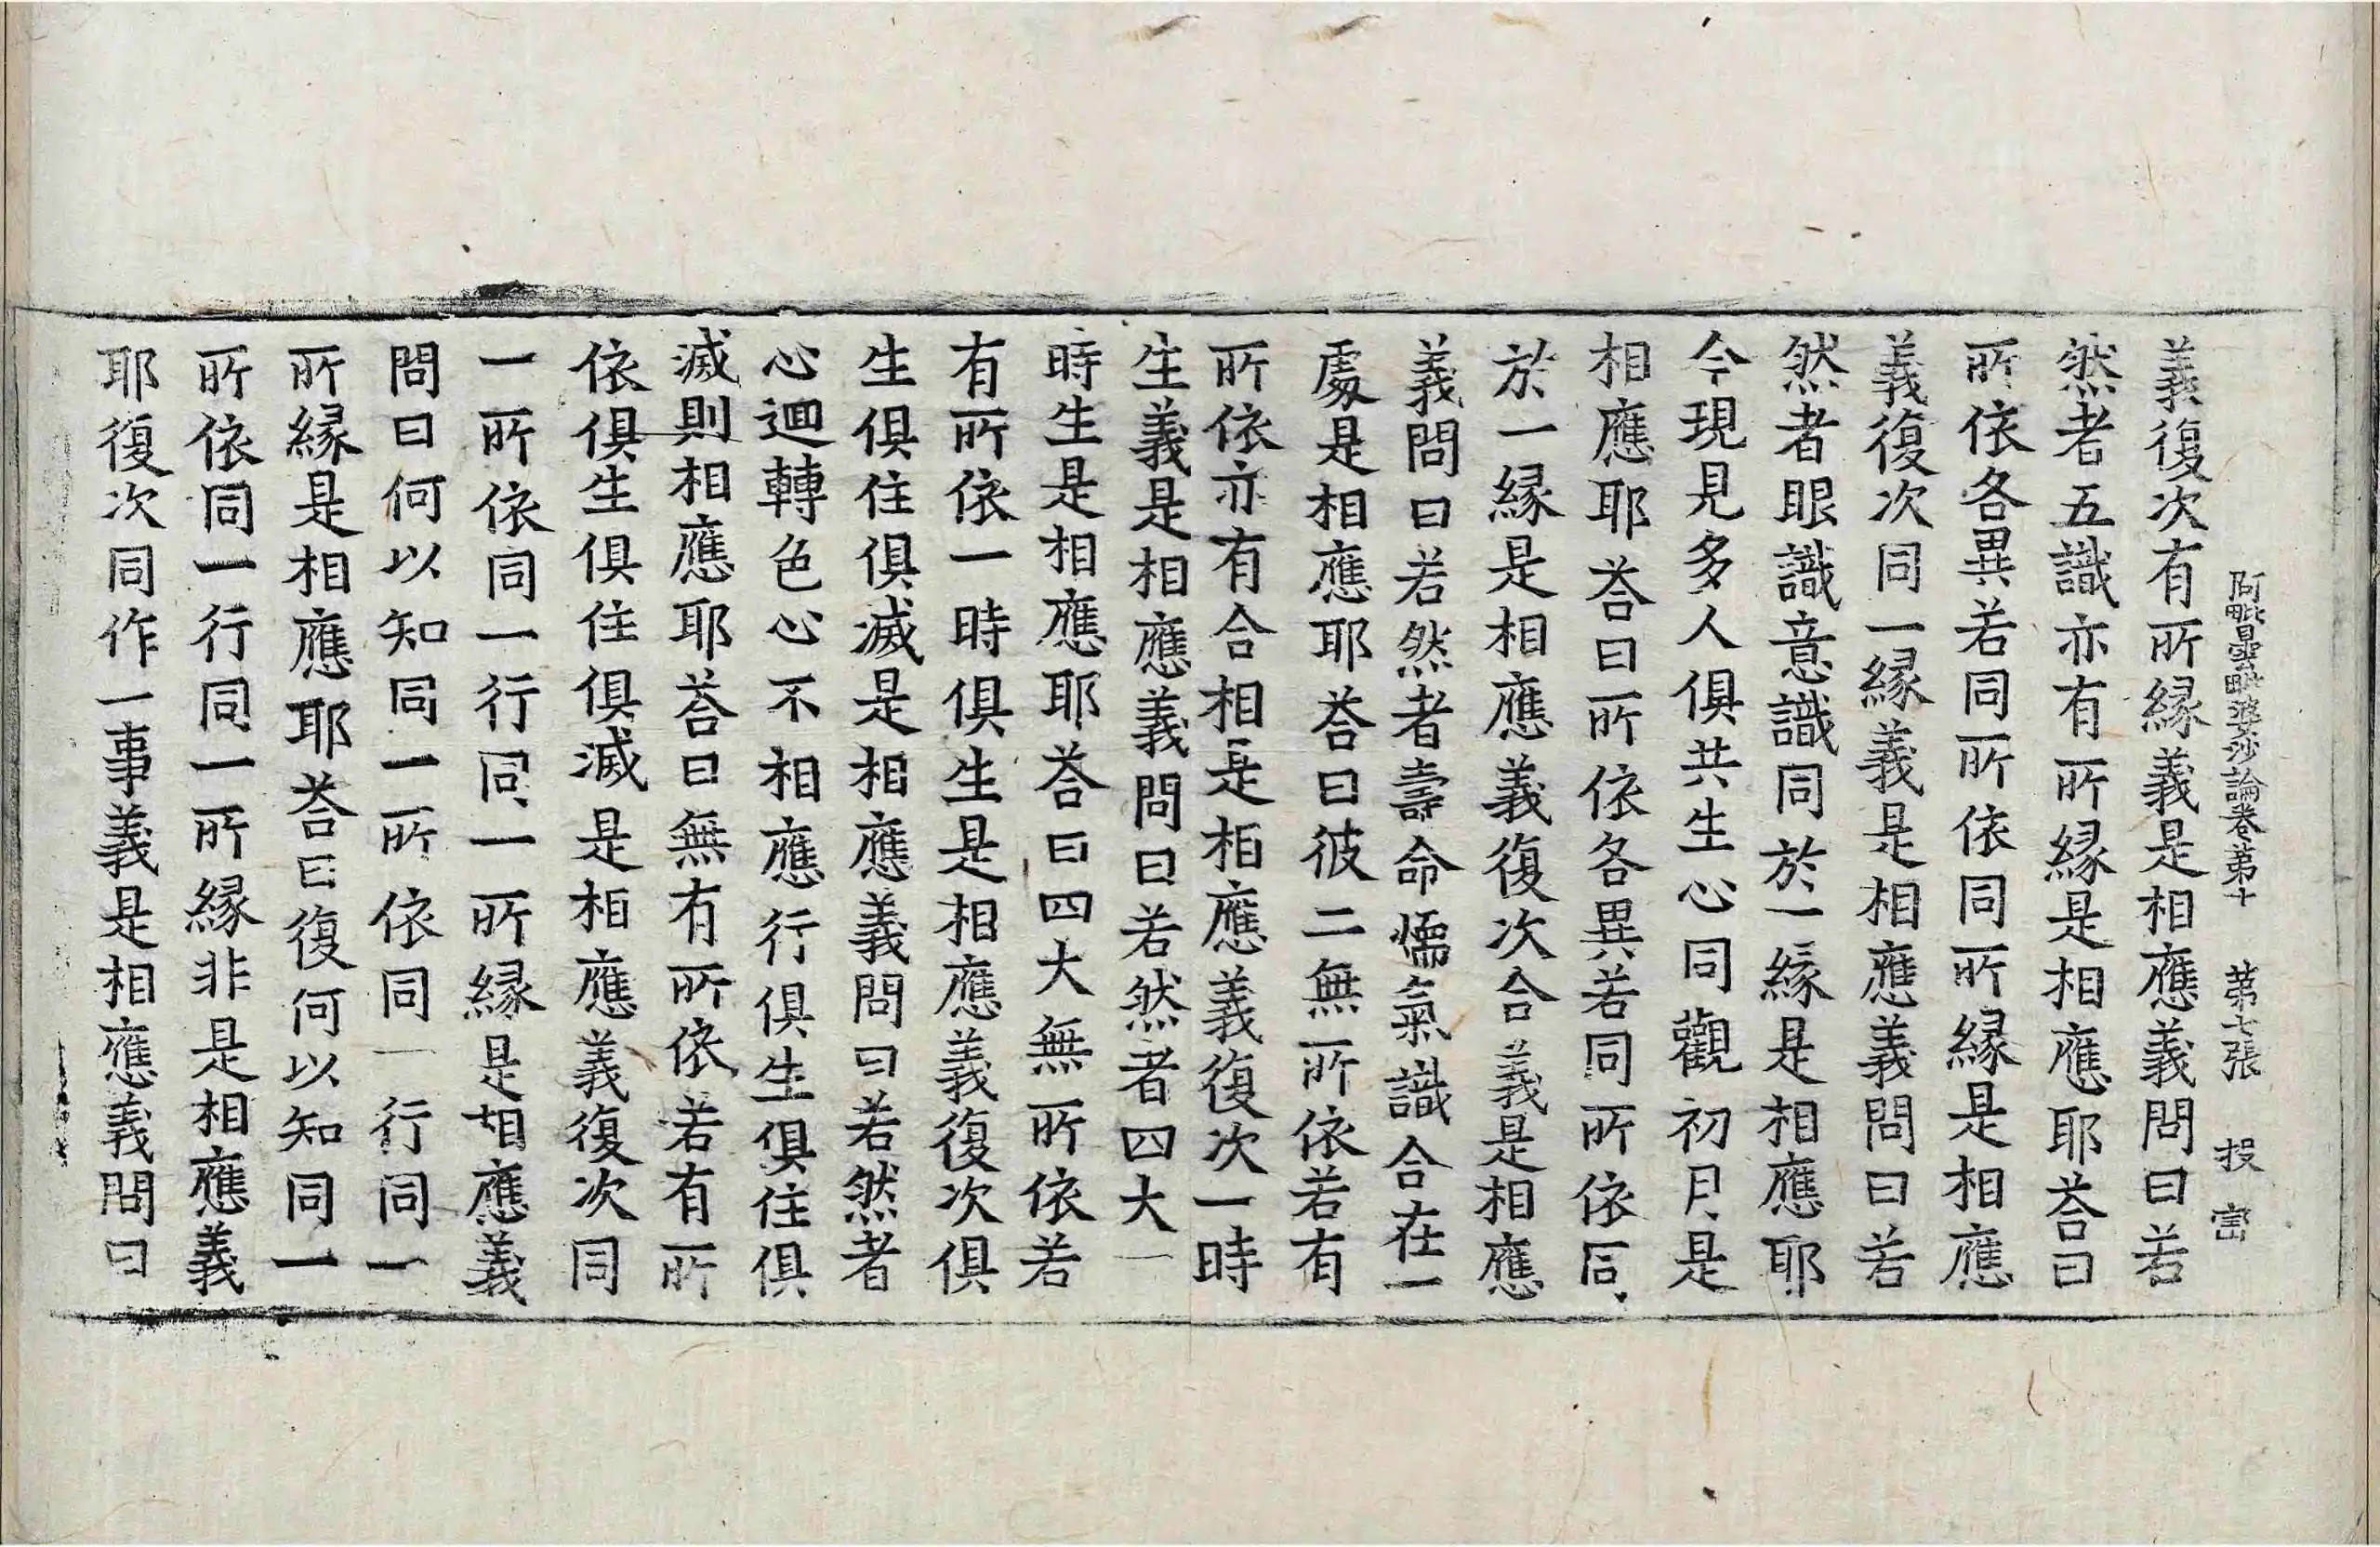 阿毗曇毗婆沙論卷第十　第七張　投
義復次有所緣義是相應義問曰若
然者五識亦有所緣是相應耶荅曰
所依各異若同所依同所緣是相應
義復次同一緣義是相應義問曰若
然者眼識意識同於一緣是相應耶
今現見多人俱共生心同觀初月是
相應耶荅曰所依各異若同所依同
於一緣是相應義復次合義是相應
義問曰若然者壽命煖氣識合在一
處是相應耶荅曰彼二無所依若有
所依亦有合相是相應義復次一時
生義是相應義問曰若然者四大一
時生是相應耶荅曰四大無所依若
有所依一時俱生是相應義復次俱
生俱住俱滅是相應義問曰若然者
心迴轉色心不相應行俱生俱住俱
滅則相應耶荅曰無有所依若有所
依俱生俱住俱滅是相應義復次同
一所依同一行同一所緣是相應義
問曰何以知同一所依同一行同一
所緣是相應耶荅曰復何以知同一
所依同一行同一所緣非是相應義
耶復次同作一事義是相應義問曰